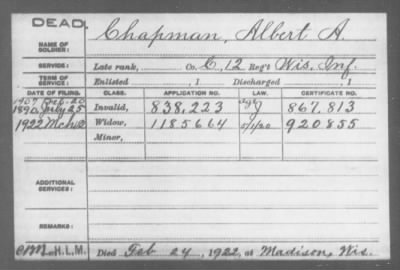 DEAD.
Chapman, Albert A.
NAME OF SOLDIER:
SERVICE: Late rank, Co. C, 12 Reg't Wis. Inf.
TERM OF SERVICE: Enlisted , 1 Discharged , 1
DATE OF FILING. CLASS. APPLICATION NO. LAW. CERTIFICATE NO.
1907 Feb. 20
1890, July 25 Invalid, 838,223 867,813
1922 Mch 2 Widow, 1185664 5/1/20 920855
Minor,
ADDITIONAL SERVICES:
REMARKS:
H.L.M. Died Feb 24, 1922, at Madison, Wis.